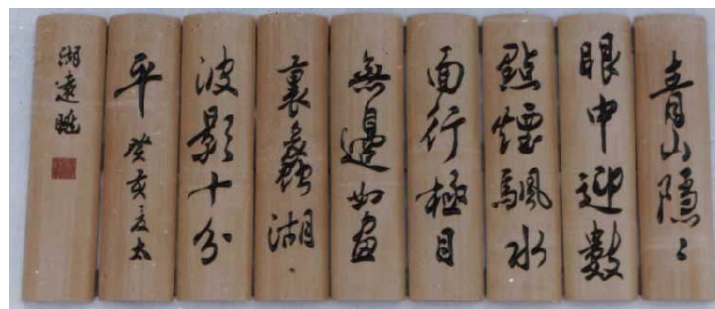 青山隱〻
眼中迎數
點煙颿水
面行極目
無邊如畫
裏蠡湖
波影十分
平 癸亥夏太
湖遠眺